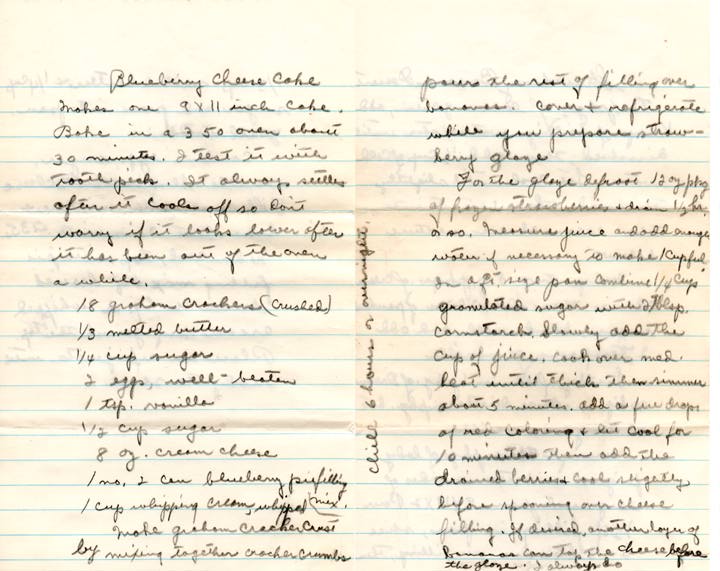 Blueberry Cheese Cake
Makes one 9 x 11 inch cake.
Bake in a 350 oven about
30 minutes. I test it with
tooth pick. It always settles
after it cools off so don't
worry if it looks lower after
it has been out of the oven
a while.
18 graham crackers (crushed)
1/3 melted butter
1/4 cup sugar
2 eggs, well-beaten
1 tsp. vanilla
1/2 cup sugar
8 oz. cream cheese
1 no. 2 can blueberry pie filling
1 cup whipping cream, whipped (mix.
Make graham cracker crust
by mixing together cracker crumbs
chill 6 hours or overnight.
pour the rest of filling over
bananas. Cover + refrigerate
while you prepare straw-
berry glaze
For the glaze defrost 12 oz pkg
of frozen strawberries + drain 1/2 hr.
or so. Measure juice and add enough
water if necessary to make 1 cupful
In a qt. size pan combine 1/4 cup
granulated sugar with 2 tblsp.
cornstarch. Slowly add the
cup of juice. Cook over med.
heat until thick then simmer
about 5 minutes. add a few drops
of red coloring + let cool for
10 minutes then add the
drained berries + cool slightly
before spooning over cheese
filling. If desired, another layer of
bananas can top the cheese before
the glaze. I always do